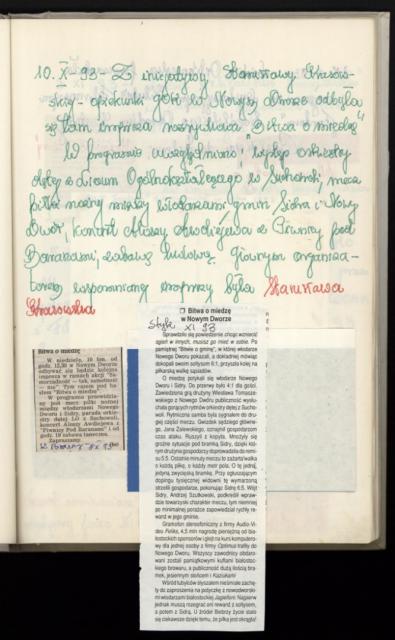 10. X - 93 - Z inicjatywy Stanisławy Krasow-
skiej - opiekunki GOK w Nowym Dworze odbyła
się tam impreza rozrywkowa "Bitwa o miedzę"
W programie uwzględniono: występ orkiestry
dętej z Liceum Ogólnokształcącego w Suchowoli, mecz
piłki nożnej między włodarzami gmin Sidra i Nowy
Dwór, koncert Ałaszy Awdiejewa z Piwnicy pod
Baranami, zabawę ludową. Głównym organiza-
torem wspomnianej imprezy była Stanisława
Krasowska
Bitwa o miedzę
W niedzielę, 10 bm. od
godz. 12.30 w Nowym Dworze
odbywać się będzie kolejna
impreza w ramach akcji "Sa-
morządność — tak, samotność
— nie". Tym razem pod ha-
słem "Bitwa o miedzę".
W programie przewidzia-
ny pod mecz piłki nożnej
między włodarzami Nowego
Dworu i Sidry, parada orkie-
stry dętej LO z Suchowoli,
koncert Aloszy Awdiejewa z
"Piwnicy Pod Baranami" i od
godz. 19 zabawa taneczna.
Zapraszamy.
Bitwa o miedzę
w Nowym Dworze
XI 93
Sprawdziło się powiedzenie chcąc wzniecić
ogień w innych, musisz go mieć w sobie. Po
pamiętnej "Bitwie o gminę", w której włodarze
Nowego Dworu pokazali, a dokładniej mówiąc
dokopali swoim sołtysom 6:1, przyszła kolej na
piłkarską walkę sąsiadów.
O miedzę potykali się włodarze Nowego
Dworu i Sidry. Do przerwy było 4:1 dla gości.
Zawiedzioną grą drużyny Wiesława Tomasze-
wskiego z Nowego Dworu publiczność wysłu-
chała gorących rytmów orkiestry dętej z Sucho-
woli. Rytmiczna samba była sygnałem do dru-
giej części meczu. Gwizdek sędziego główne-
go, Jana Zalewskiego, oznajmił gospodarzom
czas ataku. Ruszyli z kopyta. Mnożyły się
groźne sytuacje pod bramką Sidry, dzięki któ-
rym drużyna gospodarzy doprowadziła do remi-
su 5:5. Ostatnie minuty meczu to zażarta walka
o każdą piłkę, o każdy metr pola. O tę jedną,
jedyną zwycięską bramkę. Przy ogłuszającym
dopingu tysięcznej widowni tę wymarzoną
strzelili gospodarze, pokonując Sidrę 6:5. Wójt
Sidry, Andrzej Szutkowski, podkreślił wpraw-
dzie towarzyski charakter meczu, tym niemniej
po minimalnej porażce zapowiedział rychły re-
wanż w jego gminie.
Gramofon stereofoniczny z firmy Audio-Vi-
deo Fonika, 4,5 mln nagrody pieniężnej od bia-
łostockich sponsorów i glejt na kurs komputero-
wy dla jednej osoby z firmy Optimus trafiły do
Nowego Dworu. Wszyscy zawodnicy obdaro-
wani zostali pamiątkowymi kuflami białostoc-
kiego browaru, a publiczność dużą ilością bra-
mek, jesiennym słońcem i Kaziukami!
Wśród tubylców słyszałem nieśmiałe zachę-
ty do zaproszenia na potyczkę z nowodworski-
mi włodarzami białostockiej Jagiellonii. Najpierw
jednak muszą rozegrać oni rewanż z sołtysem,
a potem z Sidrą. U źródeł Biebrzy życie stało
się ciekawsze dzięki temu, że piłka jest okrągła!